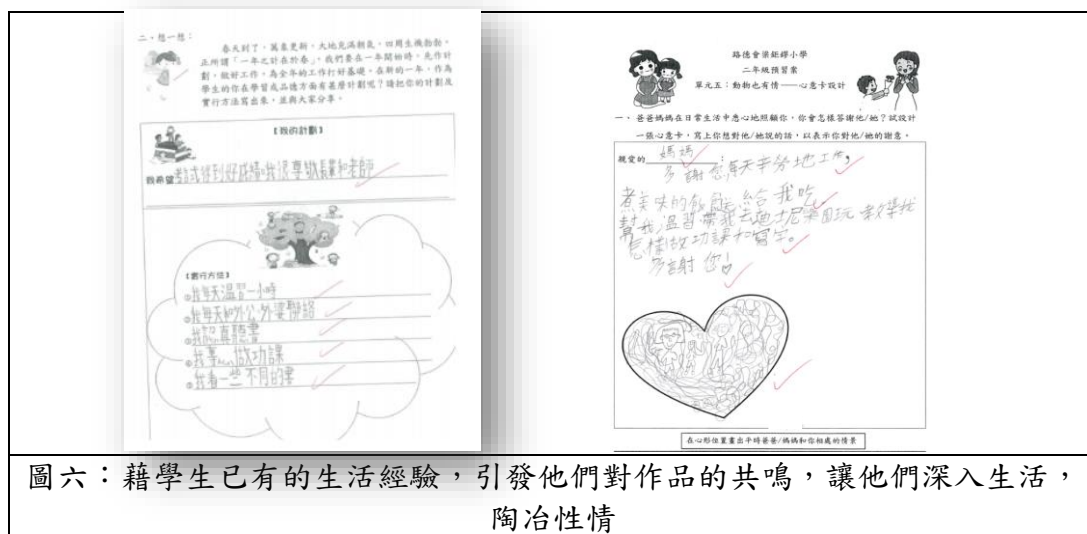 二、想一想:
春天到了,萬象更新,大地充滿朝氣,四周生機勃勃。
正所謂「一年之計在於春」,我們要在一年開始時,先作計
劃,做好工作,為全年的工作打好基礎。在新的一年,作為
學生的你在學習或品德方面有甚麼計劃呢?請把你的計劃及
實行方法寫出來,並與大家分享。
【我的計劃】
我希望考試得到好成績。我很尊敬長輩和老師
【實行方法】
①我每天溫習一小時
②我每天和外公外婆聯絡
③我認真聽書
④我專心做功課
⑤我看一些不同的書
路德會梁鉅鏐小學
二年級預習案
單元五:動物也有情——心意卡設計
一、爸爸媽媽在日常生活中悉心地照顧你,你會怎樣答謝他/她?試設計
一張心意卡,寫上你想對他/她說的話,以表示你對他/她的謝意。
親愛的媽媽:
多謝您每天辛勞地工作,
煮美味的飯餸給我吃。
幫我溫習帶我去迪士尼樂園玩教導我
怎樣做功課和寫字。
多謝您!
在心形位置畫出平時爸爸/媽媽和你相處的情景
圖六:藉學生已有的生活經驗,引發他們對作品的共鳴,讓他們深入生活,
陶冶性情